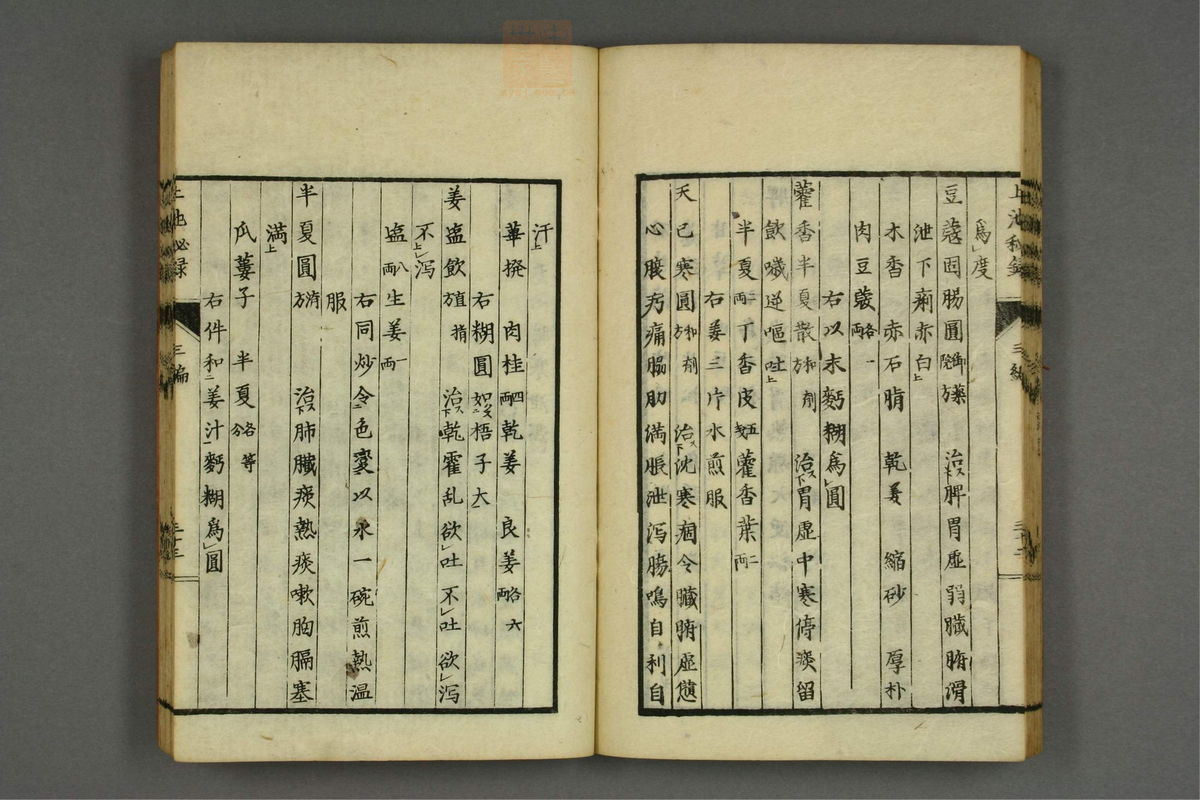 為度
豆蔻固腸圓 御藥院方 治脾胃虛弱臟腑滑
泄下痢赤白
木香 赤石脂 乾姜 縮砂 厚朴
肉豆蔻 各一兩
右以末麪糊為圓
藿香半夏散 和劑方 治胃虛中寒停痰留
飲噦逆嘔吐
半夏 二兩 丁香皮 五 藿香葉 二兩
右姜三片水煎服
天已寒圓 和劑方 治沈寒痼冷臟腑虛憊
心腹㽲痛脇肋満脹泄瀉腸鳴自利自
上池秘録 三編 三十二
汗
蓽撥 肉桂 四兩 乾姜 良姜 各六兩
右糊圓如梧子大
姜塩飲 治乾霍乱欲吐不吐欲瀉
不瀉
塩 八兩 生姜 一兩
右同炒令色変以水一碗煎熱温
服
半夏圓 治肺臟痰熱痰嗽胸膈塞
満
瓜蔞子 半夏 各等分
右件和姜汁麪糊為圓
上池秘録 三編 三十三